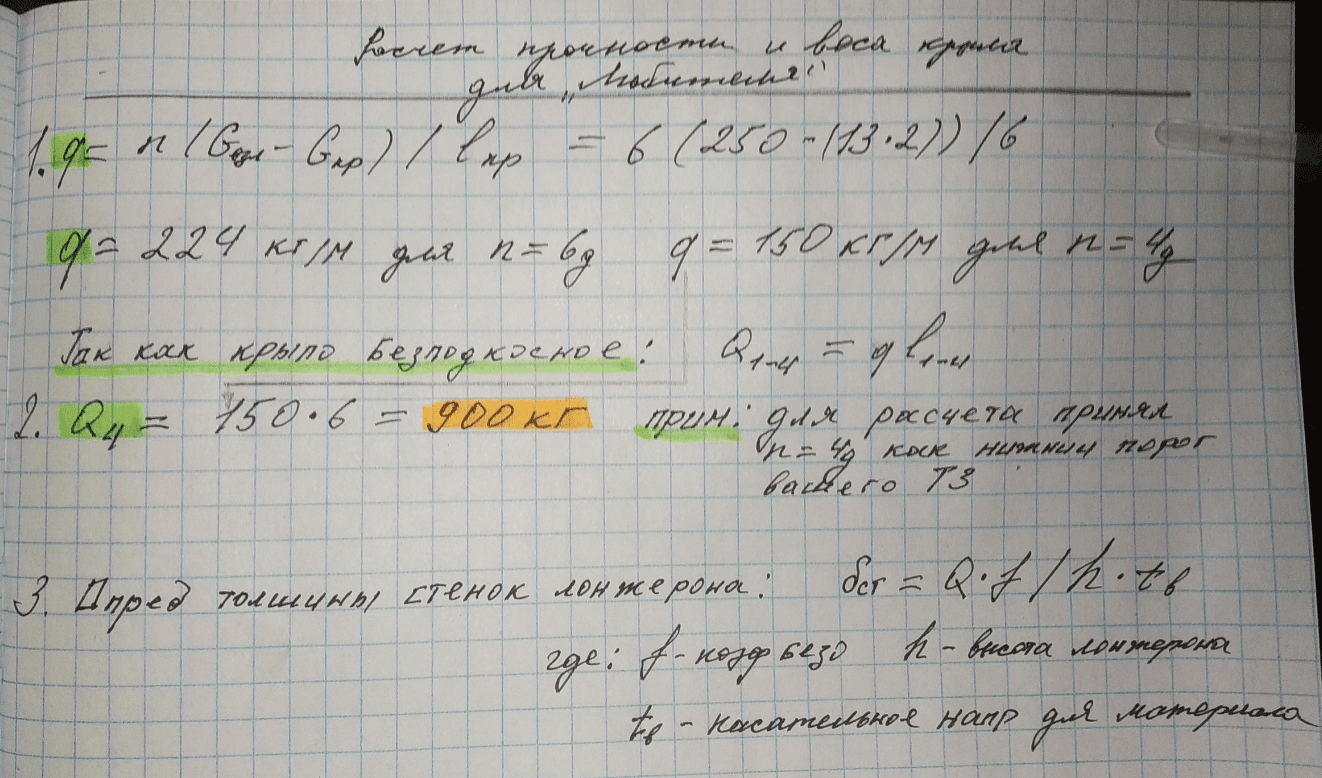 Расчет прочности и веса крыла
для „Любителя"
1. q = n (Gвзл - Gкр) / lкр = 6 (250 - (13·2)) / 6
q = 224 кг/м для n = 6g q = 150 кг/м для n = 4g
Так как крыло безподкосное: Q1-4 = q l1-4
2. Q4 = 150·6 = 900 кг прим: для расчета принял
n = 4g как нижний порог
вашего ТЗ
3. Опред толшины стенок лонжерона: бст = Q·f / h·tв
где: f - коэф безо h - высота лонжерона
tв - касательное напр для материала